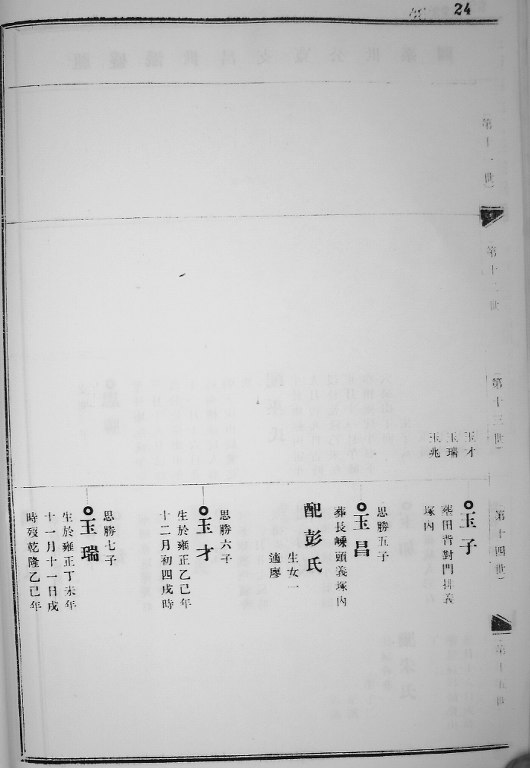 24
第十一世
第十二世
第十三世
第十四世
第十五世
玉才
玉瑞
玉兆
玉子
葬田背對門排義
塚內
思勝五子
玉昌
葬長嵊頭義塚內
配彭氏
生女一
適廖
思勝六子
玉才
生於雍正乙己年
十二月初四戌時
思勝七子
玉瑞
生於雍正丁未年
十一月十一日戌
時歿乾隆乙己年